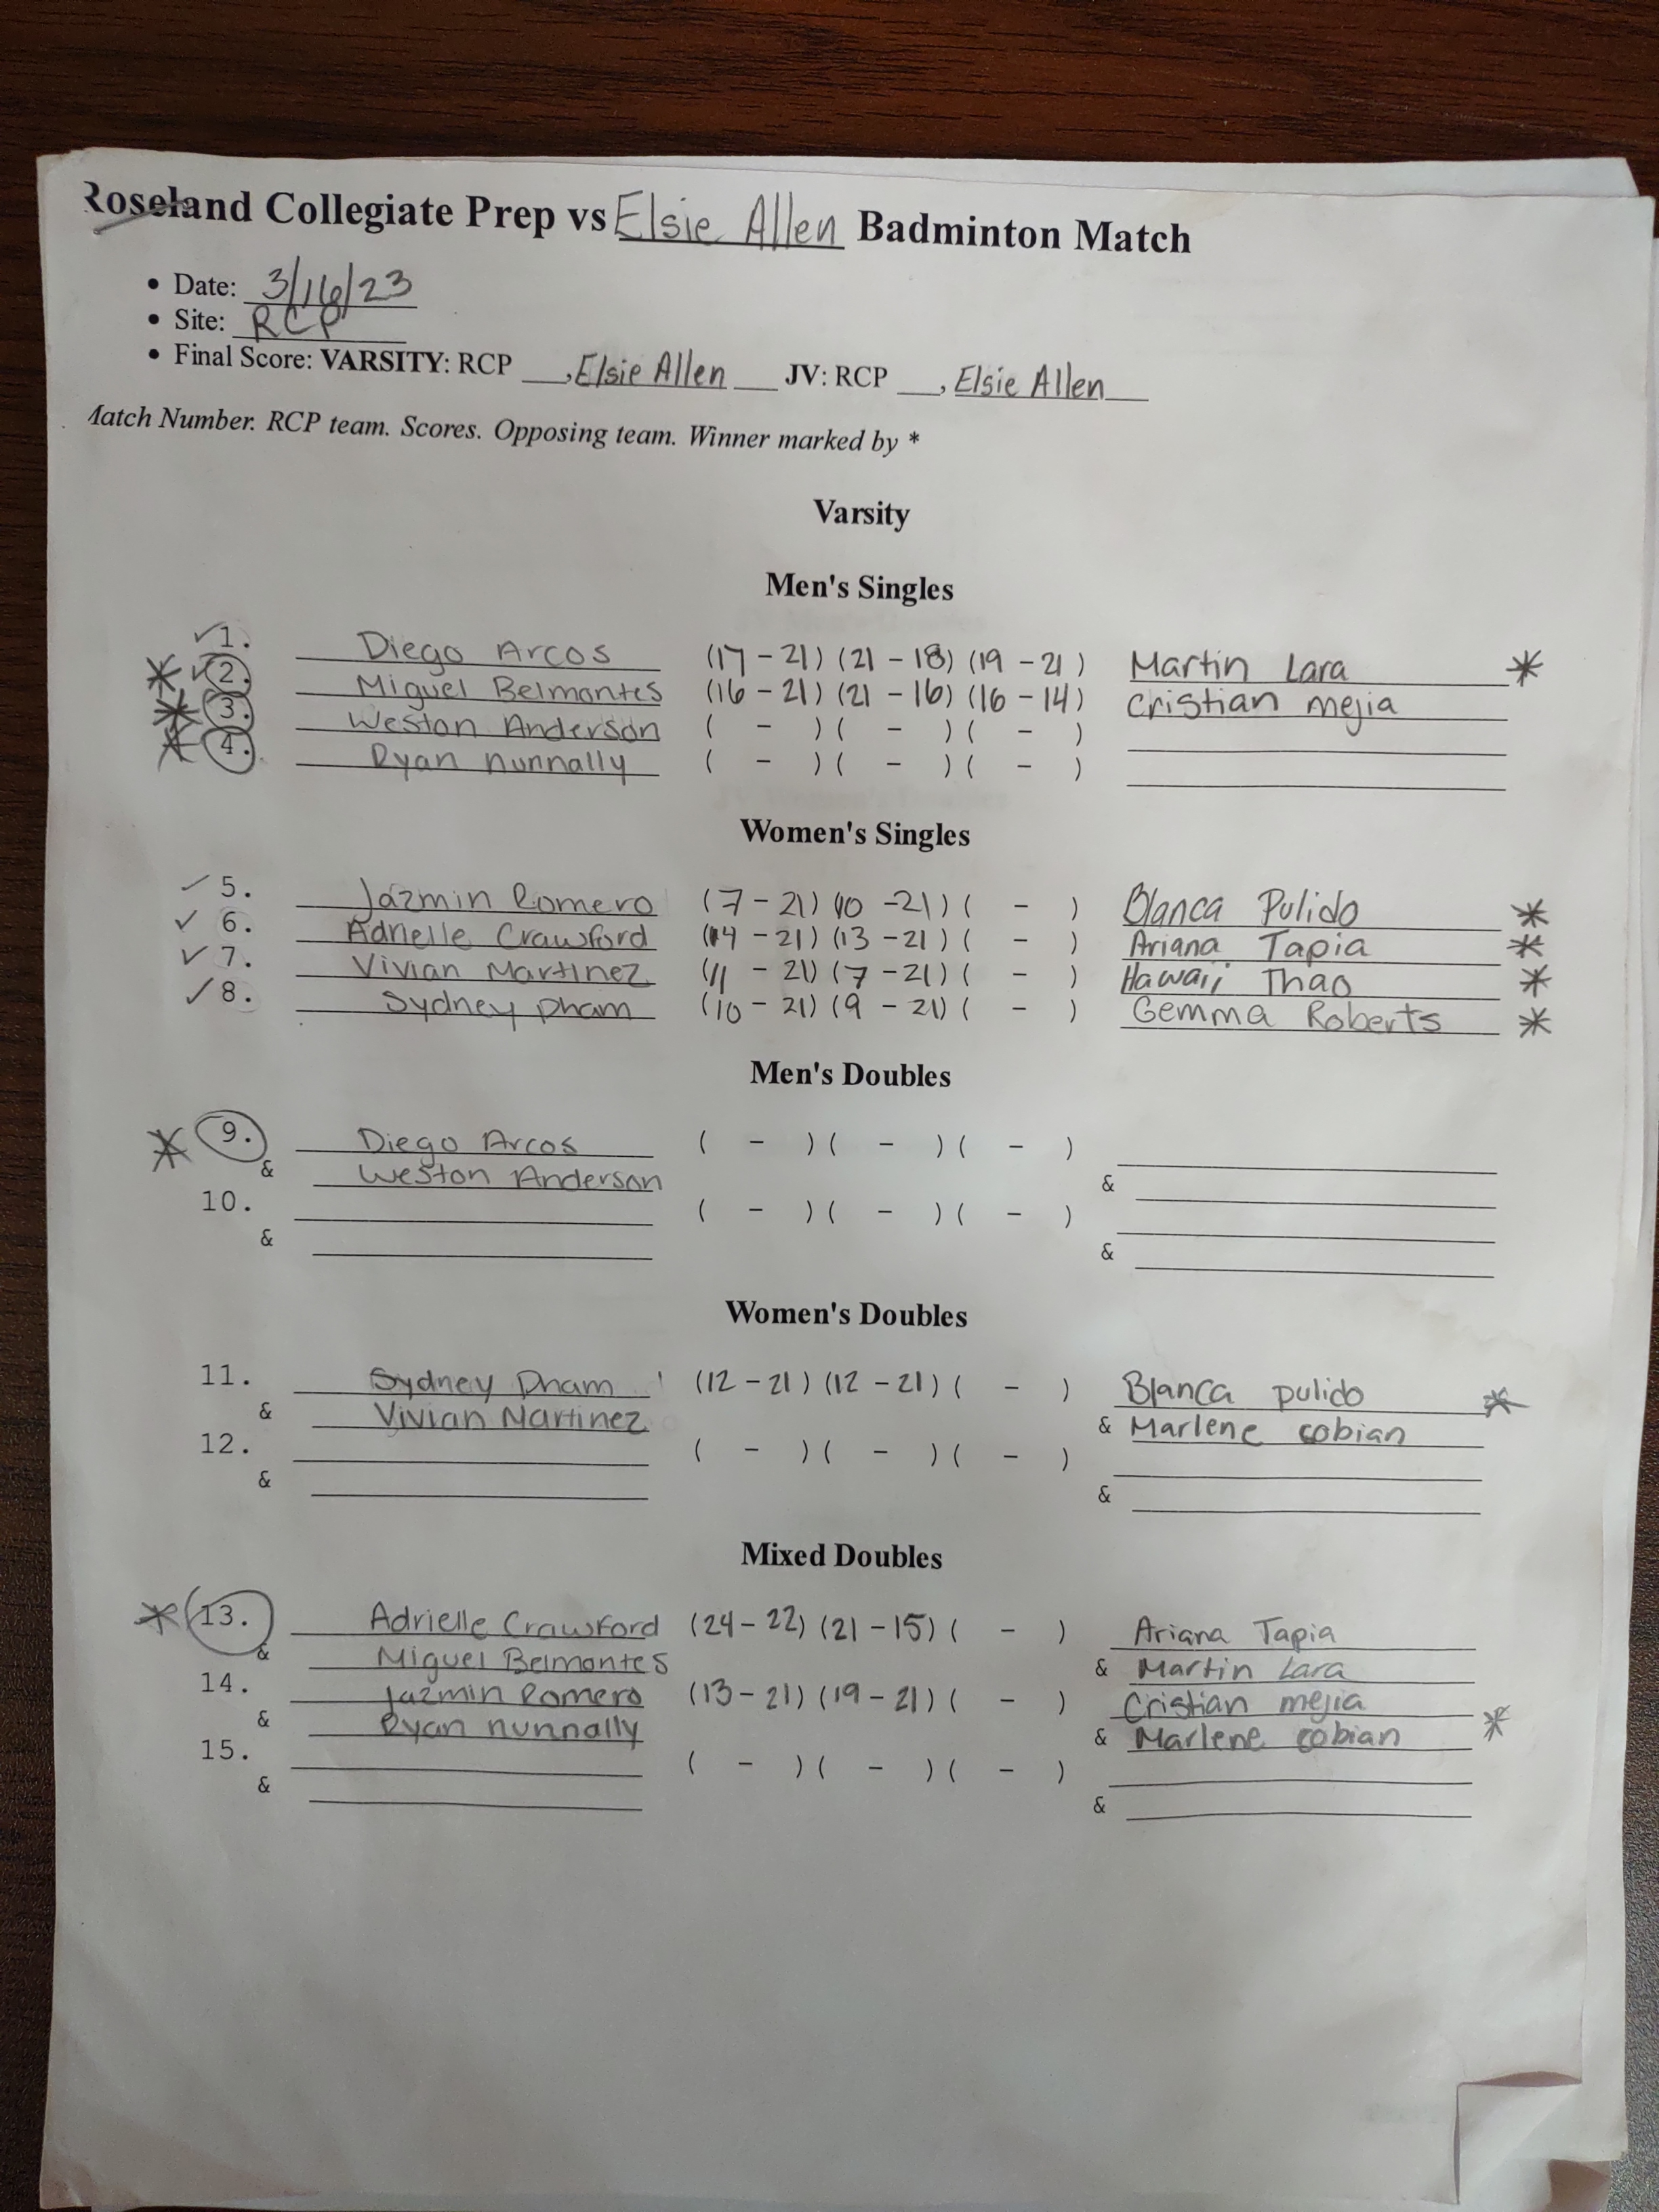 Roseland Collegiate Prep vs Elsie Allen Badminton Match
• Date: 3/16/23
• Site: RCP
• Final Score: VARSITY: RCP ___, Elsie Allen ___ JV: RCP ___, Elsie Allen ___
Match Number. RCP team. Scores. Opposing team. Winner marked by *
Varsity
Men's Singles
✓ 1. Diego Arcos (17 - 21) (21 - 18) (19 - 21) Martin Lara *
* ✓ 2. Miguel Belmontes (16 - 21) (21 - 16) (16 - 14) Cristian mejia
* 3. Weston Anderson ( - ) ( - ) ( - )
* 4. Ryan nunnally ( - ) ( - ) ( - )
Women's Singles
✓ 5. Jazmin Romero (7 - 21) (10 - 21) ( - ) Blanca Pulido *
✓ 6. Adrielle Crawford (14 - 21) (13 - 21) ( - ) Ariana Tapia *
✓ 7. Vivian Martinez (11 - 21) (7 - 21) ( - ) Hawaii Thao *
✓ 8. Sydney Pham (10 - 21) (9 - 21) ( - ) Gemma Roberts *
Men's Doubles
* 9. Diego Arcos ( - ) ( - ) ( - )
& Weston Anderson &
10. ( - ) ( - ) ( - )
& &
Women's Doubles
11. Sydney Pham (12 - 21) (12 - 21) ( - ) Blanca pulido *
& Vivian Martinez & Marlene cobian
12. ( - ) ( - ) ( - )
& &
Mixed Doubles
* 13. Adrielle Crawford (24 - 22) (21 - 15) ( - ) Ariana Tapia
& Miguel Belmontes & Martin Lara
14. Jazmin Romero (13 - 21) (19 - 21) ( - ) Cristian mejia
& Ryan nunnally & Marlene cobian *
15. ( - ) ( - ) ( - )
& &